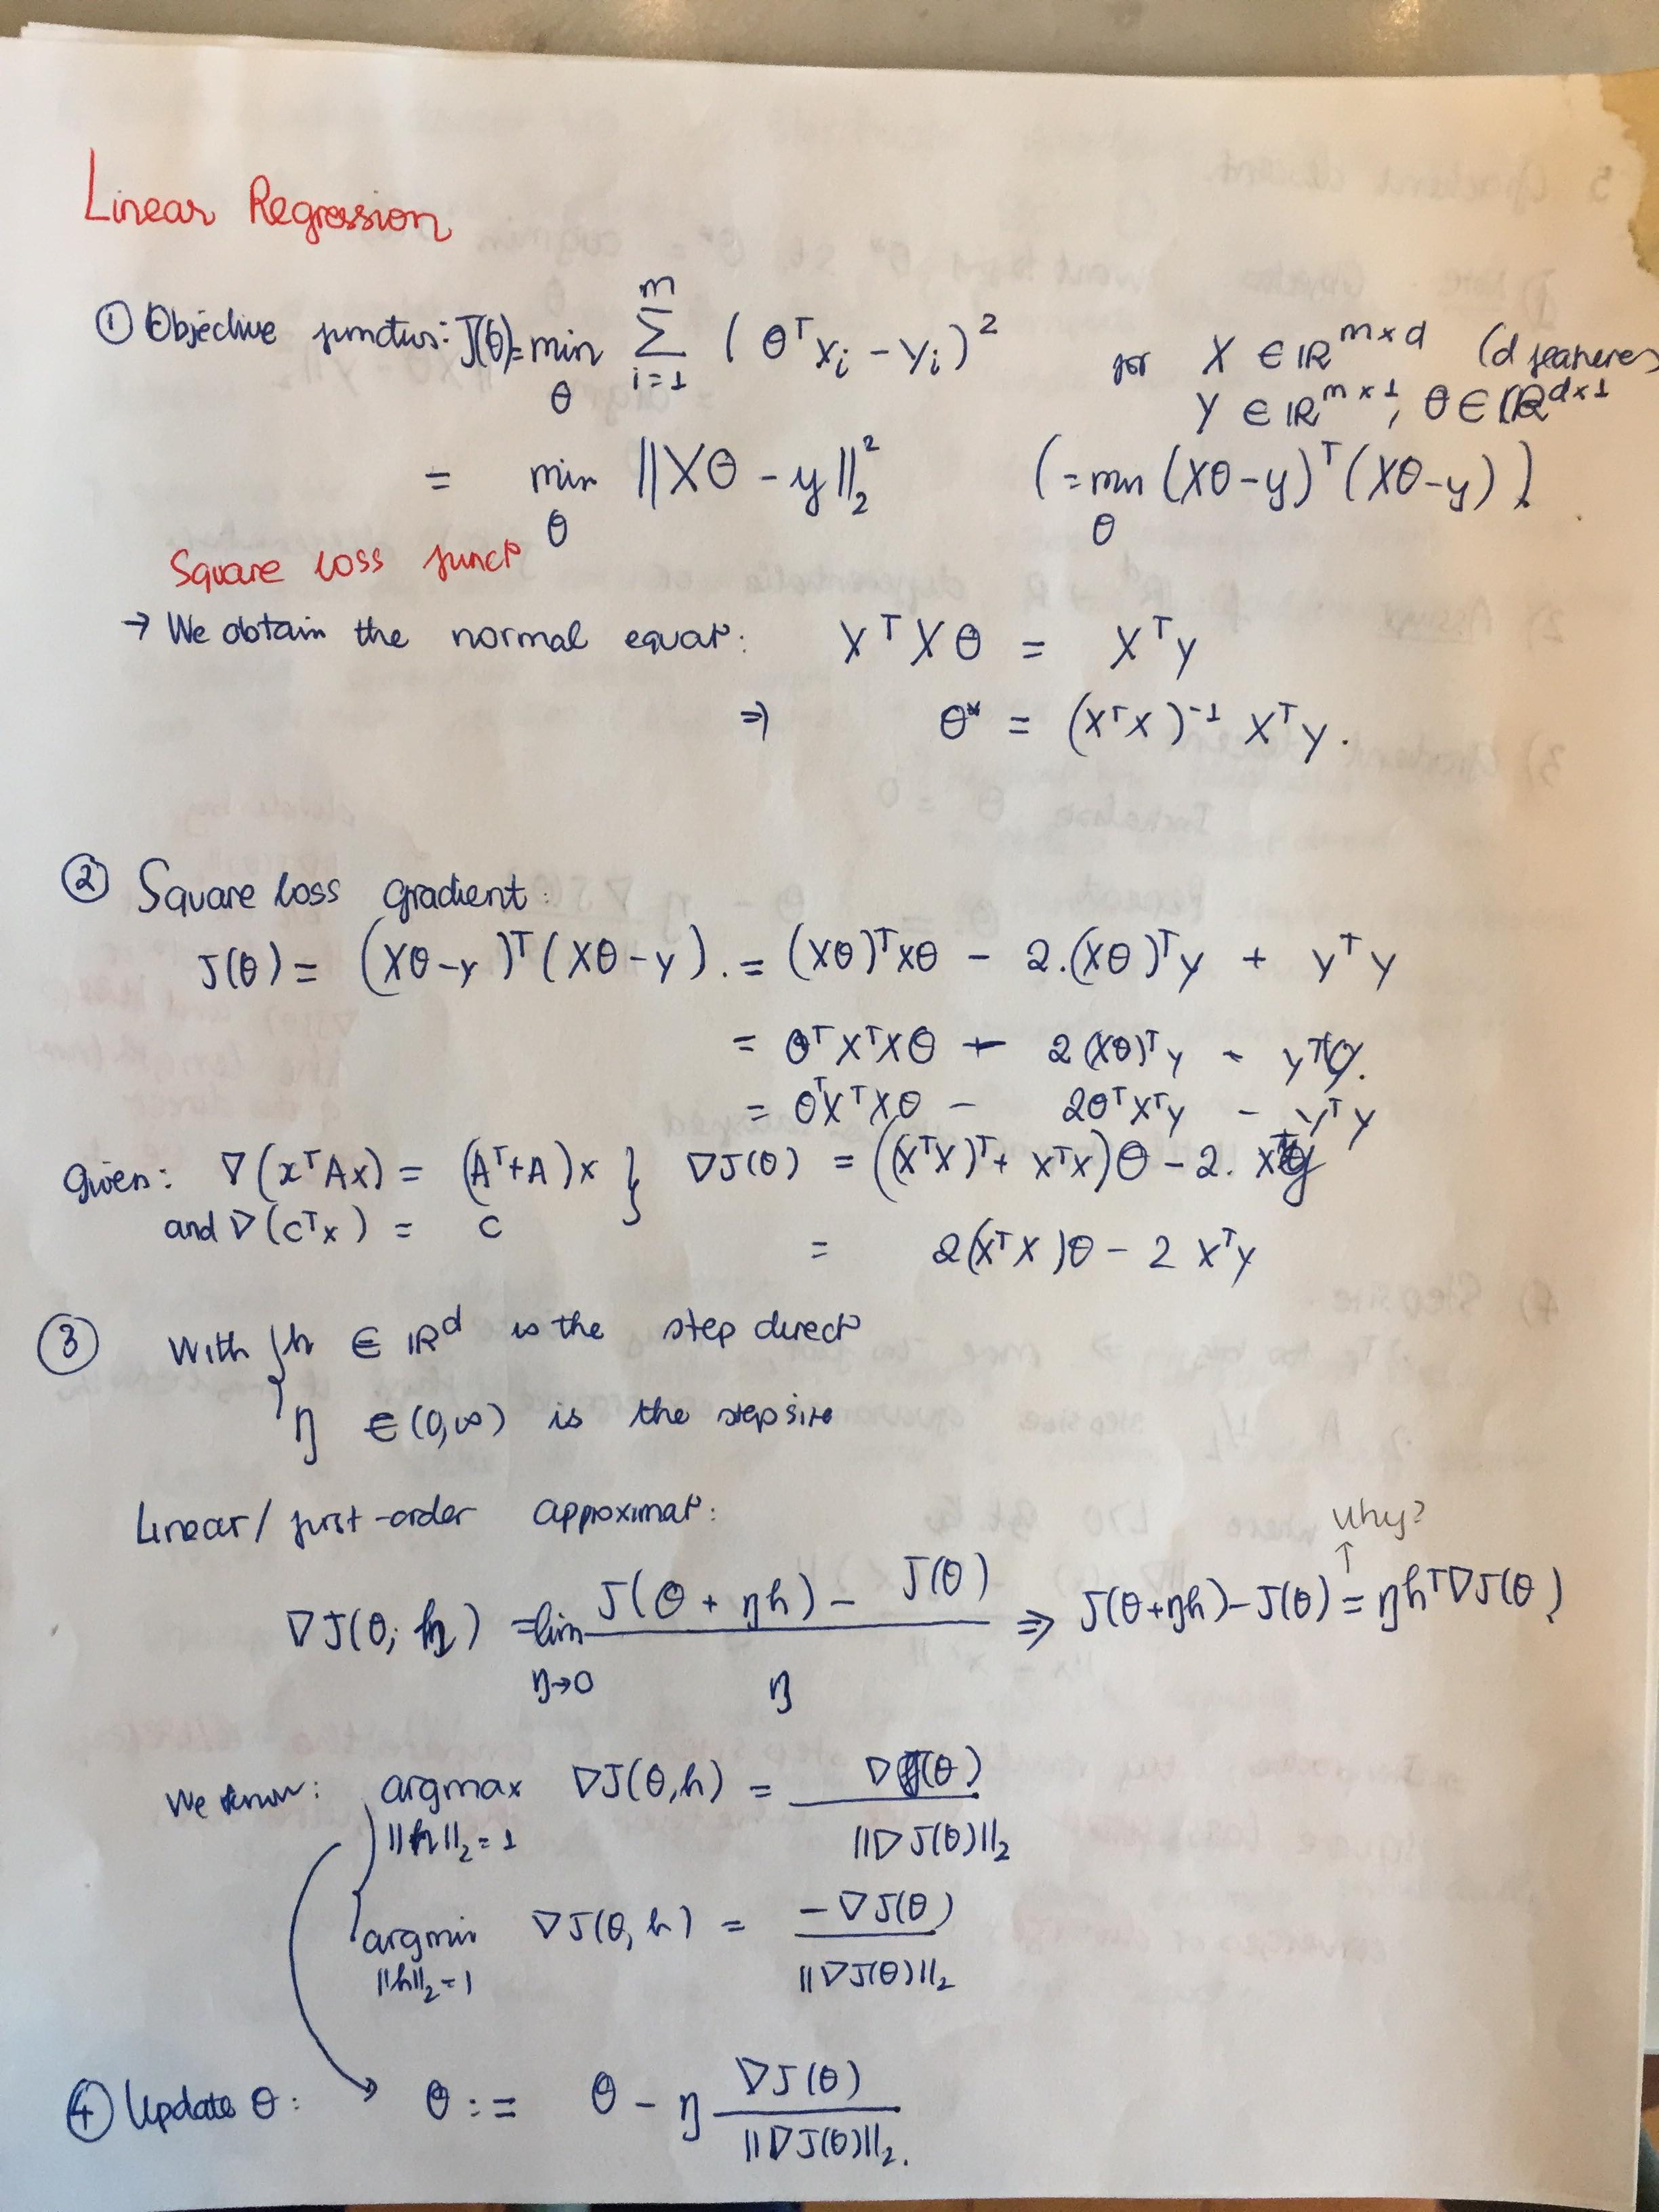 Linear Regression
① Objective function: J(θ)= min_θ Σ_{i=1}^{m} (θᵀx_i - y_i)² for X ∈ ℝ^{m×d} (d features
Y ∈ ℝ^{m×1}, θ ∈ ℝ^{d×1}
= min_θ ||Xθ - y||₂² (= min_θ (Xθ-y)ᵀ(Xθ-y))
Square loss funct°
→ We obtain the normal equat°: XᵀXθ = Xᵀy
⇒ θ* = (XᵀX)⁻¹ Xᵀy.
② Square loss gradient:
J(θ) = (Xθ-y)ᵀ(Xθ-y). = (Xθ)ᵀXθ - 2.(Xθ)ᵀy + yᵀy
= θᵀXᵀXθ - 2(Xθ)ᵀy - yᵀy.
= θᵀXᵀXθ - 2θᵀXᵀy - yᵀy
Given: ∇(xᵀAx) = (Aᵀ+A)x } ∇J(θ) = ((XᵀX)ᵀ + XᵀX)θ - 2. Xᵀy
and ∇(cᵀx) = c
= 2(XᵀX)θ - 2 Xᵀy
③ With { h ∈ ℝᵈ is the step direct°
η ∈ (0,∞) is the step size
Linear/first-order approximat°:
why?
∇J(θ; h) = lim_{η→0} (J(θ + ηh) - J(θ)) / η ⇒ J(θ+ηh)-J(θ) = ηhᵀ∇J(θ)
We know: argmax_{||h||₂=1} ∇J(θ,h) = ∇J(θ) / ||∇J(θ)||₂
argmin_{||h||₂=1} ∇J(θ,h) = -∇J(θ) / ||∇J(θ)||₂
④ Update θ: θ := θ - η ∇J(θ) / ||∇J(θ)||₂.